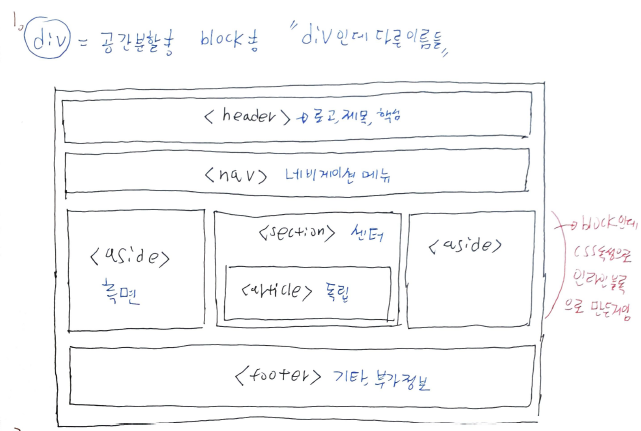 1.
div = 공간분할용 block용 "div인데 다른이름들"
<header> → 로고, 제목, 핵심
<nav> 네비게이션 메뉴
<aside>
측면
<section> 센터
<article> 독립
<aside>
→ block인데
CSS속성으로
인라인블록
으로 만든거임
<footer> 기타, 부가정보